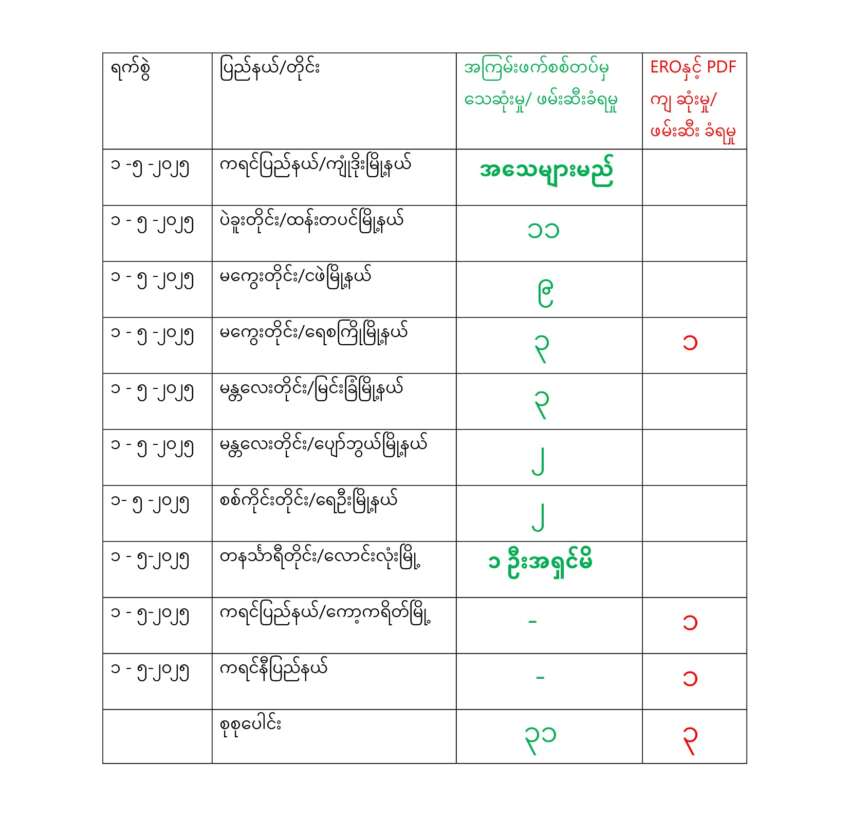 ရက်စွဲ
ပြည်နယ်/တိုင်း
အကြမ်းဖက်စစ်တပ်မှ
သေဆုံးမှု/ ဖမ်းဆီးခံရမှု
EROနှင့် PDF
ကျ ဆုံးမှု/
ဖမ်းဆီး ခံရမှု
၁ -၅ -၂၀၂၅ ကရင်ပြည်နယ်/ကျုံဒိုးမြို့နယ် အသေများမည်
၁ - ၅ -၂၀၂၅ ပဲခူးတိုင်း/ထန်းတပင်မြို့နယ် ၁၁
၁ - ၅ -၂၀၂၅ မကွေးတိုင်း/ငဖဲမြို့နယ် ၉
၁ - ၅ -၂၀၂၅ မကွေးတိုင်း/ရေစကြိုမြို့နယ် ၃ ၁
၁ - ၅ -၂၀၂၅ မန္တလေးတိုင်း/မြင်းခြံမြို့နယ် ၃
၁ - ၅ -၂၀၂၅ မန္တလေးတိုင်း/ပျော်ဘွယ်မြို့နယ် ၂
၁- ၅ -၂၀၂၅ စစ်ကိုင်းတိုင်း/ရေဦးမြို့နယ် ၂
၁ - ၅-၂၀၂၅ တနင်္သာရီတိုင်း/လောင်းလုံးမြို့ ၁ ဦးအရှင်မိ
၁ - ၅-၂၀၂၅ ကရင်ပြည်နယ်/ကော့ကရိတ်မြို့ - ၁
၁ - ၅-၂၀၂၅ ကရင်နီပြည်နယ် - ၁
စုစုပေါင်း ၃၁ ၃